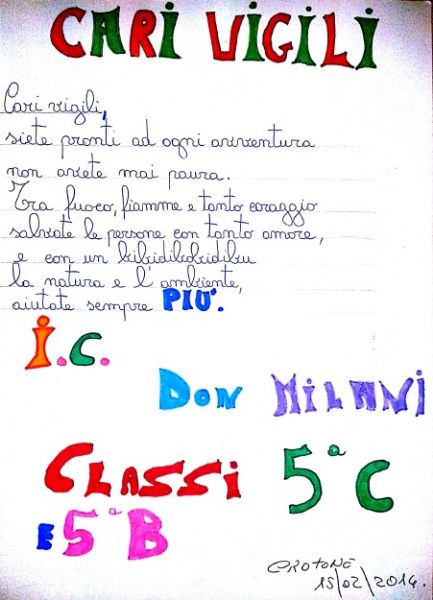 CARI VIGILI
Cari vigili,
siete pronti ad ogni avventura
non avete mai paura.
Tra fuoco, fiamme e tanto coraggio
salvate le persone con tanto amore,
e con un bibidibobidibu
la natura e l'ambiente,
aiutate sempre PIU'.
I.C.
DON MILANI
CLASSI 5ª C
E 5ª B
CROTONE
15/02/2014.